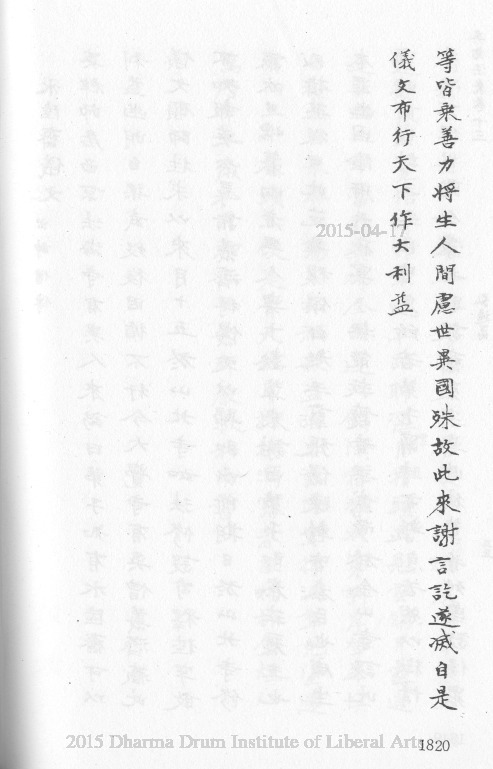 等皆乗善力將生人間慮世異國殊故此來謝言訖遂滅自是
儀文布行天下作大利益
2015-04-17
2015 Dharma Drum Institute of Liberal Arts
1820